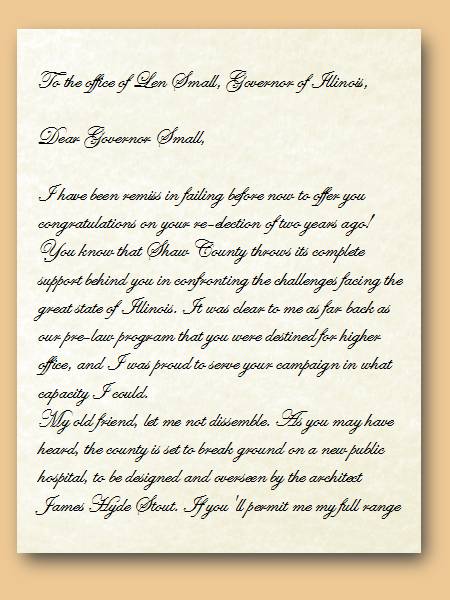 To the office of Len Small, Governor of Illinois,
Dear Governor Small,
I have been remiss in failing before now to offer you
congratulations on your re-election of two years ago!
You know that Shaw County throws its complete
support behind you in confronting the challenges facing the
great state of Illinois. It was clear to me as far back as
our pre-law program that you were destined for higher
office, and I was proud to serve your campaign in what
capacity I could.
My old friend, let me not dissemble. As you may have
heard, the county is set to break ground on a new public
hospital, to be designed and overseen by the architect
James Hyde Stout. If you'll permit me my full range